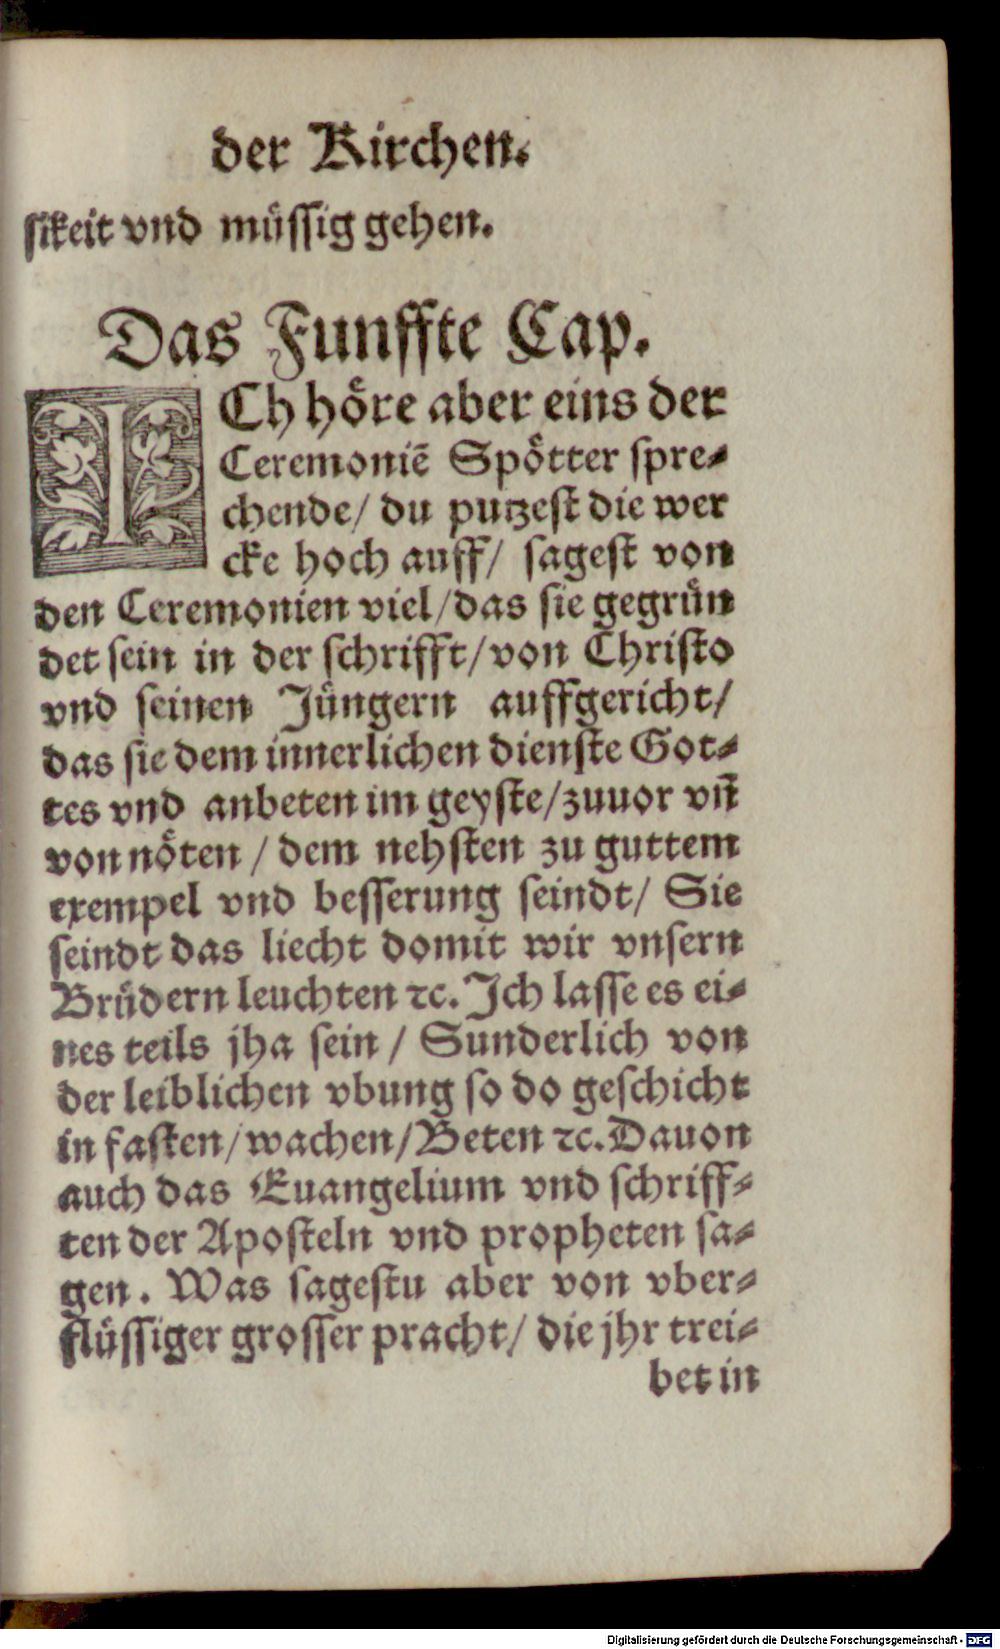 der Kirchen.
sikeit vnd müssig gehen.
Das Funffte Cap.
ICh höre aber eins der
Ceremoniē Spötter spre⸗
chende/ du putzest die wer
cke hoch auff/ sagest von
den Ceremonien viel/das sie gegrün
det sein in der schrifft/von Christo
vnd seinen Jüngern auffgericht/
das sie dem innerlichen dienste Got⸗
tes vnd anbeten im geyste/zuuor vñ
von nöten/ dem nehsten zu guttem
exempel vnd besserung seindt/ Sie
seindt das liecht domit wir vnsern
Brüdern leuchten ꝛc. Ich lasse es ei⸗
nes teils jha sein/ Sunderlich von
der leiblichen vbung so do geschicht
in fasten/wachen/Beten ꝛc. Dauon
auch das Euangelium vnd schriff⸗
ten der Aposteln vnd propheten sa⸗
gen. Was sagestu aber von vber⸗
flüssiger grosser pracht/ die jhr trei⸗
bet in
Digitalisierung gefördert durch die Deutsche Forschungsgemeinschaft - DFG